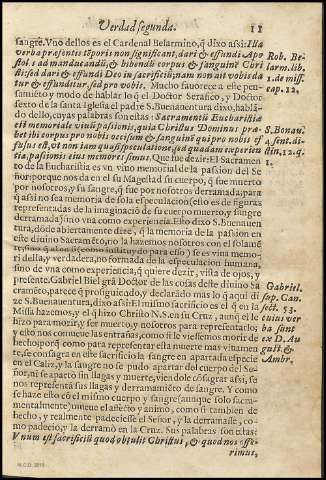 Verdad segunda. 11
sangre. Vno dellos es el Cardenal Belarmino, q̃ dixo assi: Illa
verba præsentis tẽporis non significant, dari & effundi Apo
stolis ad manducandũ, & bibendũ corpus & sanguinẽ Chri
sti: sed dari & effundi Deo in sacrificiũ; nam non ait vobis da
tur & effunditur, sed pro vobis. Mucho fauorece a este pen-
samiẽto y modo de hablar lo q̃ el Doctor Serafico, y Doctor
sexto de la santa Iglesia el padre S. Buenauentura dixo, hablã-
do dello, cuyas palabras son estas: Sacramentũ Eucharistiæ
est memoriale viuũ passionis, quia Christus Dominus præ
bet ibi corpus pro nobis occisum & sanguinẽ qui pro nobis ef
fusus est, vt non iam quasi speculatione, sed quadam experien
tia, passionis eius memores simus. Que fue dezir: El Sacramen
to de la Eucharistia es vn viuo memorial de la passion del Se
ñor: porque nos da en el su Magestad su cuerpo, q̃ fue muerto
por nosotros, y su sangre, q̃ fue por nosotros derramada; para
q̃ assi no sea memoria de sola especulacion (esto es de figuras
representadas de la imaginaciõ de su cuerpo muerto, y sangre
derramada) sino vna como experiencia. Esto dixo S. Buenauen
tura, dõde abiertamente dize, q̃ la memoria de la passion en
este diuino Sacramẽto, no la hazemos nosotros con el solamẽ
te
della, y verdadera, no formada de la especulacion humana,
sino de vna como experiencia, q̃ quiere dezir, vista de ojos, y
presente. Gabriel Biel grã Doctor de las cosas deste diuino Sa
cramẽto, parece q̃ prosiguiendo, y declarado mas lo q̃ aqui di
ze S. Buenauentura, dixo assi: El mismo sacrificio es el q̃ en la
Missa hazemos, y el q̃ hizo Christo N. S. en su Cruz, aunq̃ el le
hizo para morir, y ser muerto, y nosotros para representarlo;
y esto nos renueua las entrañas, como si le viessemos morir de
hecho: porq̃ como para representar ella muerte mas viuamen
te, se consagra en este sacrificio la sangre en apartada especie
en el Caliz, y la sangre no se pudo apartar del cuerpo del Se-
ñor, ni se apartò sin llagas y muerte, viendole cõsagrar assi, se
nos representã sus llagas y derramamiẽto de sangre. Y como
se haze esto cõ el mismo cuerpo y sangre (aunque solo sacra-
mentalmente) mueue el afecto y animo, como si tambien de
hecho, y realmente padeciesse el Señor, y la derramasse, co-
mo padecio, y la derramò en la Cruz. Sus palabras son estas:
Vnum est sacrificiũ quod obtulit Christus, & quod nos offe-
rimus,
Rob. Be-
larm. lib.
1. de miss.
cap. 12.
S. Bonau.
4. sent. di-
stin. 12. q.
1.
Gabriel.
sup. Can.
sect. 53.
cuius ver
ba sunt
ex D. Au
gust. &
Ambr.